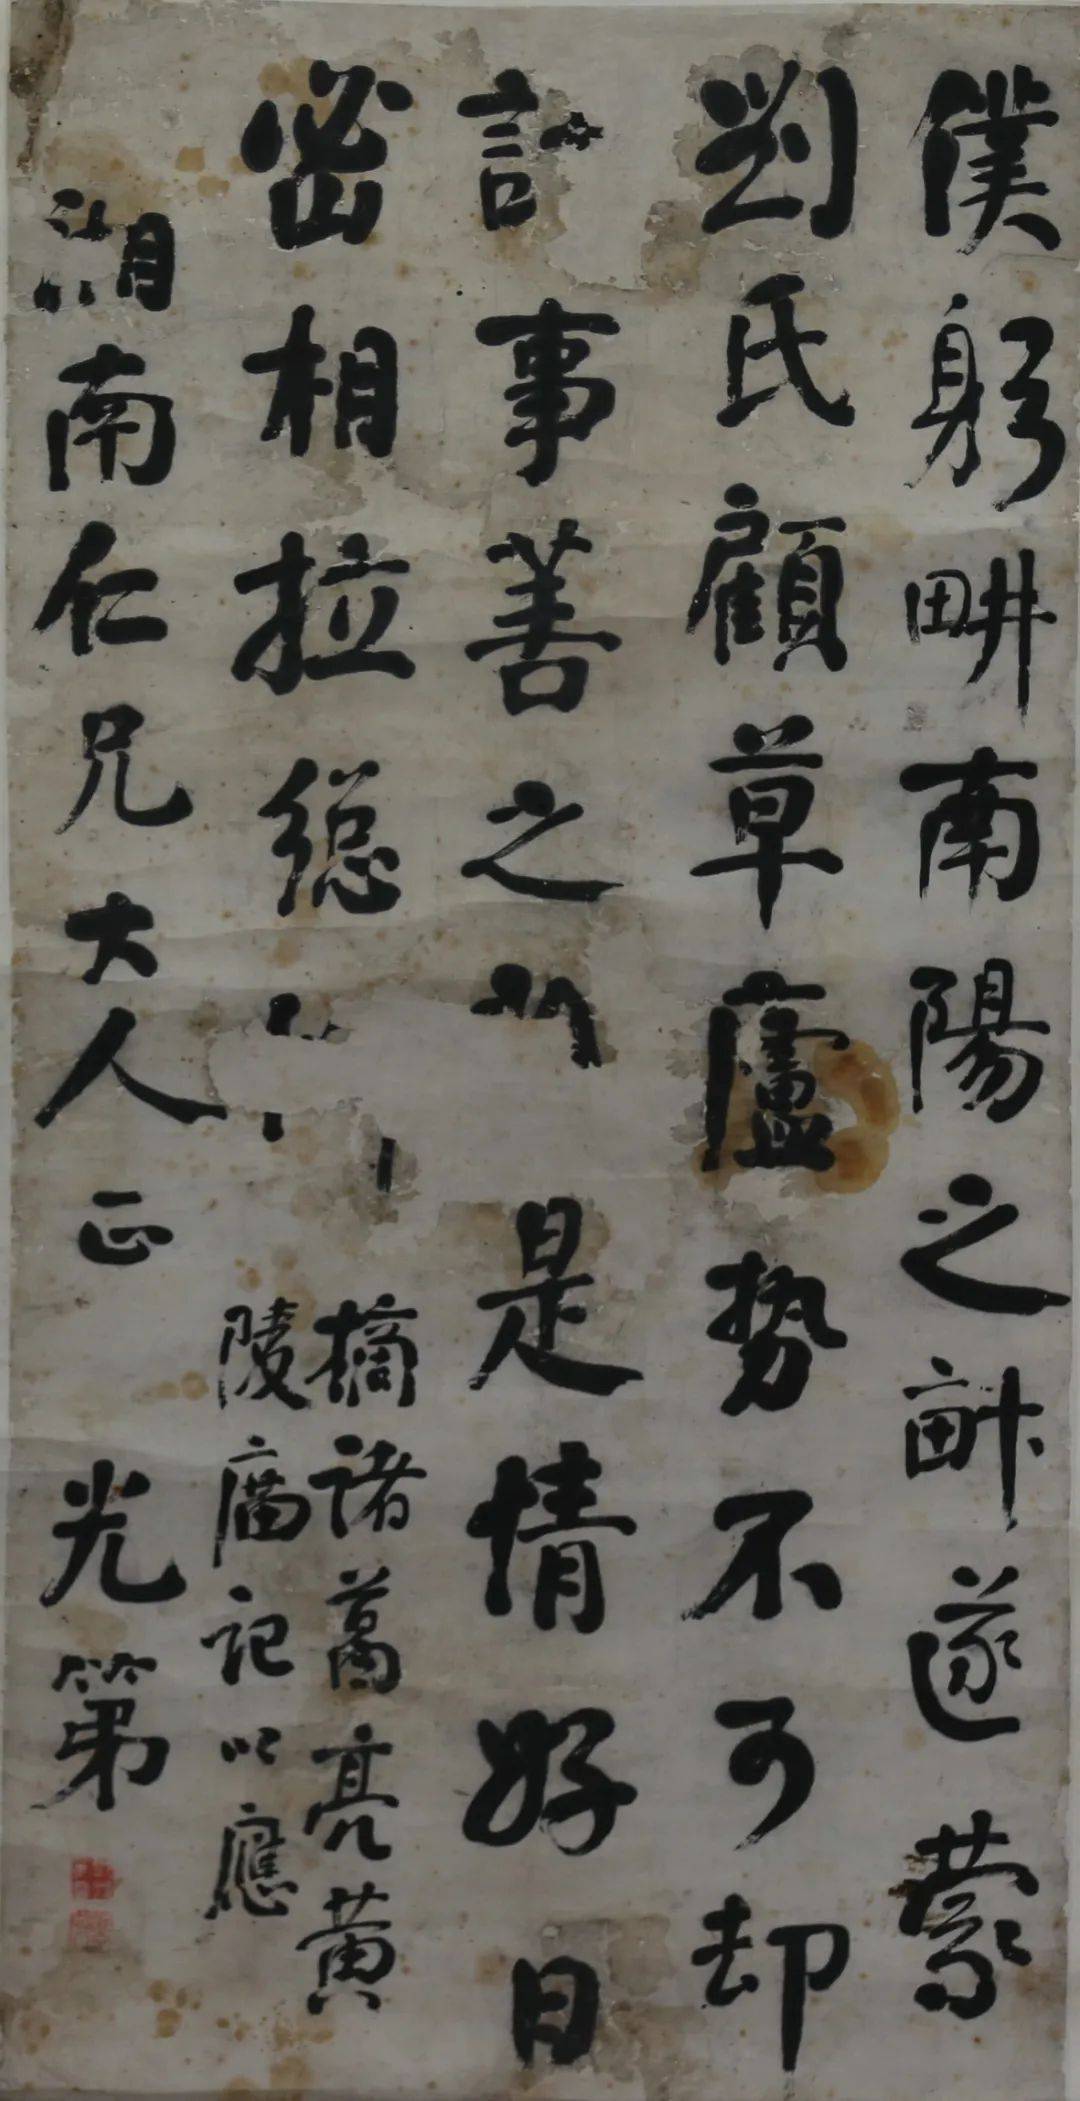 僕躬畊南陽之畝遂蒙
劉氏顧草廬勢不可却
計事善之是情好日
密相拉總
摘諸葛亮黄
陵庿記以應
湖南仁兄大人正
光第